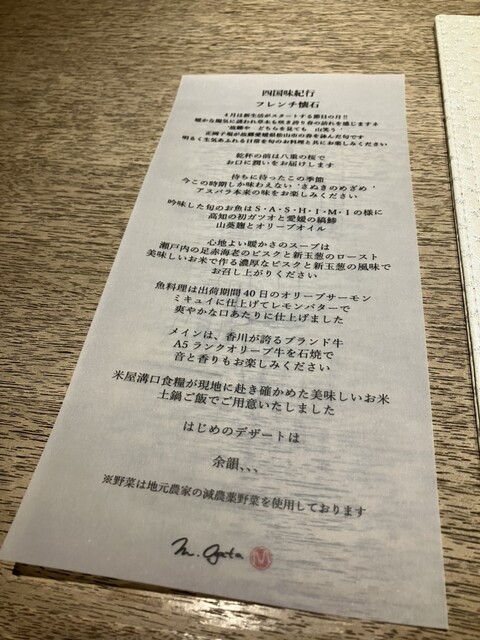 四国味紀行
フレンチ懐石
4月は新生活がスタートする節目の月!!
暖かな陽気に誘われ草木も咲き誇り春の訪れを感じます♪
'故郷や どちらを見ても 山笑う'
正岡子規が故郷愛媛県松山市の春を詠んだ句です
明るく生気あふれる日常を旬のお料理と共にお楽しみください
乾杯の前は八重の桜で
お口に潤いをお届けします
待ちに待ったこの季節
今この時期しか味わえない'さぬきのめざめ'
アスパラ本来の味をお楽しみください
吟味した旬のお魚はS・A・S・H・I・M・Iの様に
高知の初ガツオと愛媛の縞鯵
山葵麹とオリーブオイル
心地よい暖かさのスープは
瀬戸内の足赤海老のビスクと新玉葱のロースト
美味しいお米で作る濃厚なビスクと新玉葱の風味で
お召し上がりください
魚料理は出荷期間40日のオリーブサーモン
ミキュイに仕上げてレモンバターで
爽やかな口あたりに仕上げました
メインは、香川が誇るブランド牛
A5ランクオリーブ牛を石焼で
音と香りもお楽しみください
米屋溝口食糧が現地に赴き確かめた美味しいお米
土鍋ご飯でご用意いたしました
はじめのデザートは
余韻、、、
※野菜は地元農家の減農薬野菜を使用しております
M. Ogata